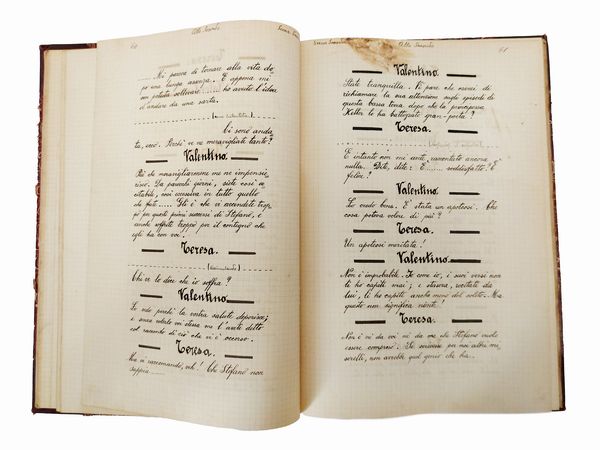 60
Atto Secondo
Scena
Mi pareva di tornare alla vita do-
po una lunga assenza. E appena mi
son potuta sollevare...... ho avuto l'idea
di andare da una sarta.
Ci sono anda
ta, ecco. Perchè ve ne meravigliate tanto?
Valentino.
Più che meravigliarmene me ne impensie-
risco. Da parecchi giorni, siete così ec
citabile, così eccessiva in tutto quello
che fate..... Gli è che vi accendete trop-
pi per questi primi successi di Stefano, e
anche soffrite troppo per il contegno che
egli ha con voi.
Teresa.
Chi ve lo dice che io soffra?
Valentino.
Lo vedo perchè la vostra salute deperisce;
e senza volerlo voi stessa me l'avete detto
col racconto di ciò che vi è occorso.
Teresa.
Ma vi raccomando, veh! Che Stefano non
sappia
Scena
Atto Secondo
61
Valentino.
State tranquilla. Vi pare che oserei di
richiamare la sua attenzione sugli episodi di
questa bassa terra dopo che la principessa
Keller lo ha battezzato gran-poeta?
Teresa.
E intanto non mi avete raccontato ancora
nulla. Dite, dite: È...... soddisfatto. È
felice?
Valentino.
Lo credo bene. È stata un apoteosi. Che
cosa poteva volere di più?
Teresa.
Un apoteosi meritata!
Valentino.
Non è improbabile. Io come io, i suoi versi non
li ho capiti mai; e stasera, recitati da
lui, li ho capiti anche meno del solito. Ma
questo non significa niente!
Teresa.
Non è nè da voi nè da me che Stefano vuole
essere compreso: Se scrivesse per noi altri mi
serelli, non avrebbe quel genio che ha.